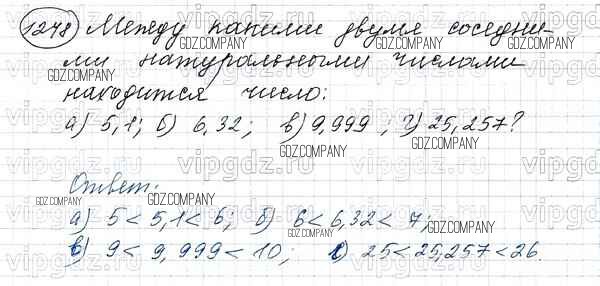 1248 Между какими двумя соседни-
ми натуральными числами
находится число:
а) 5,1; б) 6,32; в) 9,999; г) 25,257?
Ответ:
а) 5 < 5,1 < 6; б) 6 < 6,32 < 7;
в) 9 < 9,999 < 10; г) 25 < 25,257 < 26.
GDZ.COMPANY
GDZ.COMPANY
GDZ.COMPANY
GDZ.COMPANY
GDZ.COMPANY
GDZ.COMPANY
GDZ.COMPANY
GDZ.COMPANY
GDZ.COMPANY
GDZ.COMPANY
GDZ.COMPANY
vipgdz.ru
vipgdz.ru
vipgdz.ru
vipgdz.ru
vipgdz.ru
vipgdz.ru
vipgdz.ru
vipgdz.ru
vipgdz.ru
vipgdz.ru
vipgdz.ru
vipgdz.ru